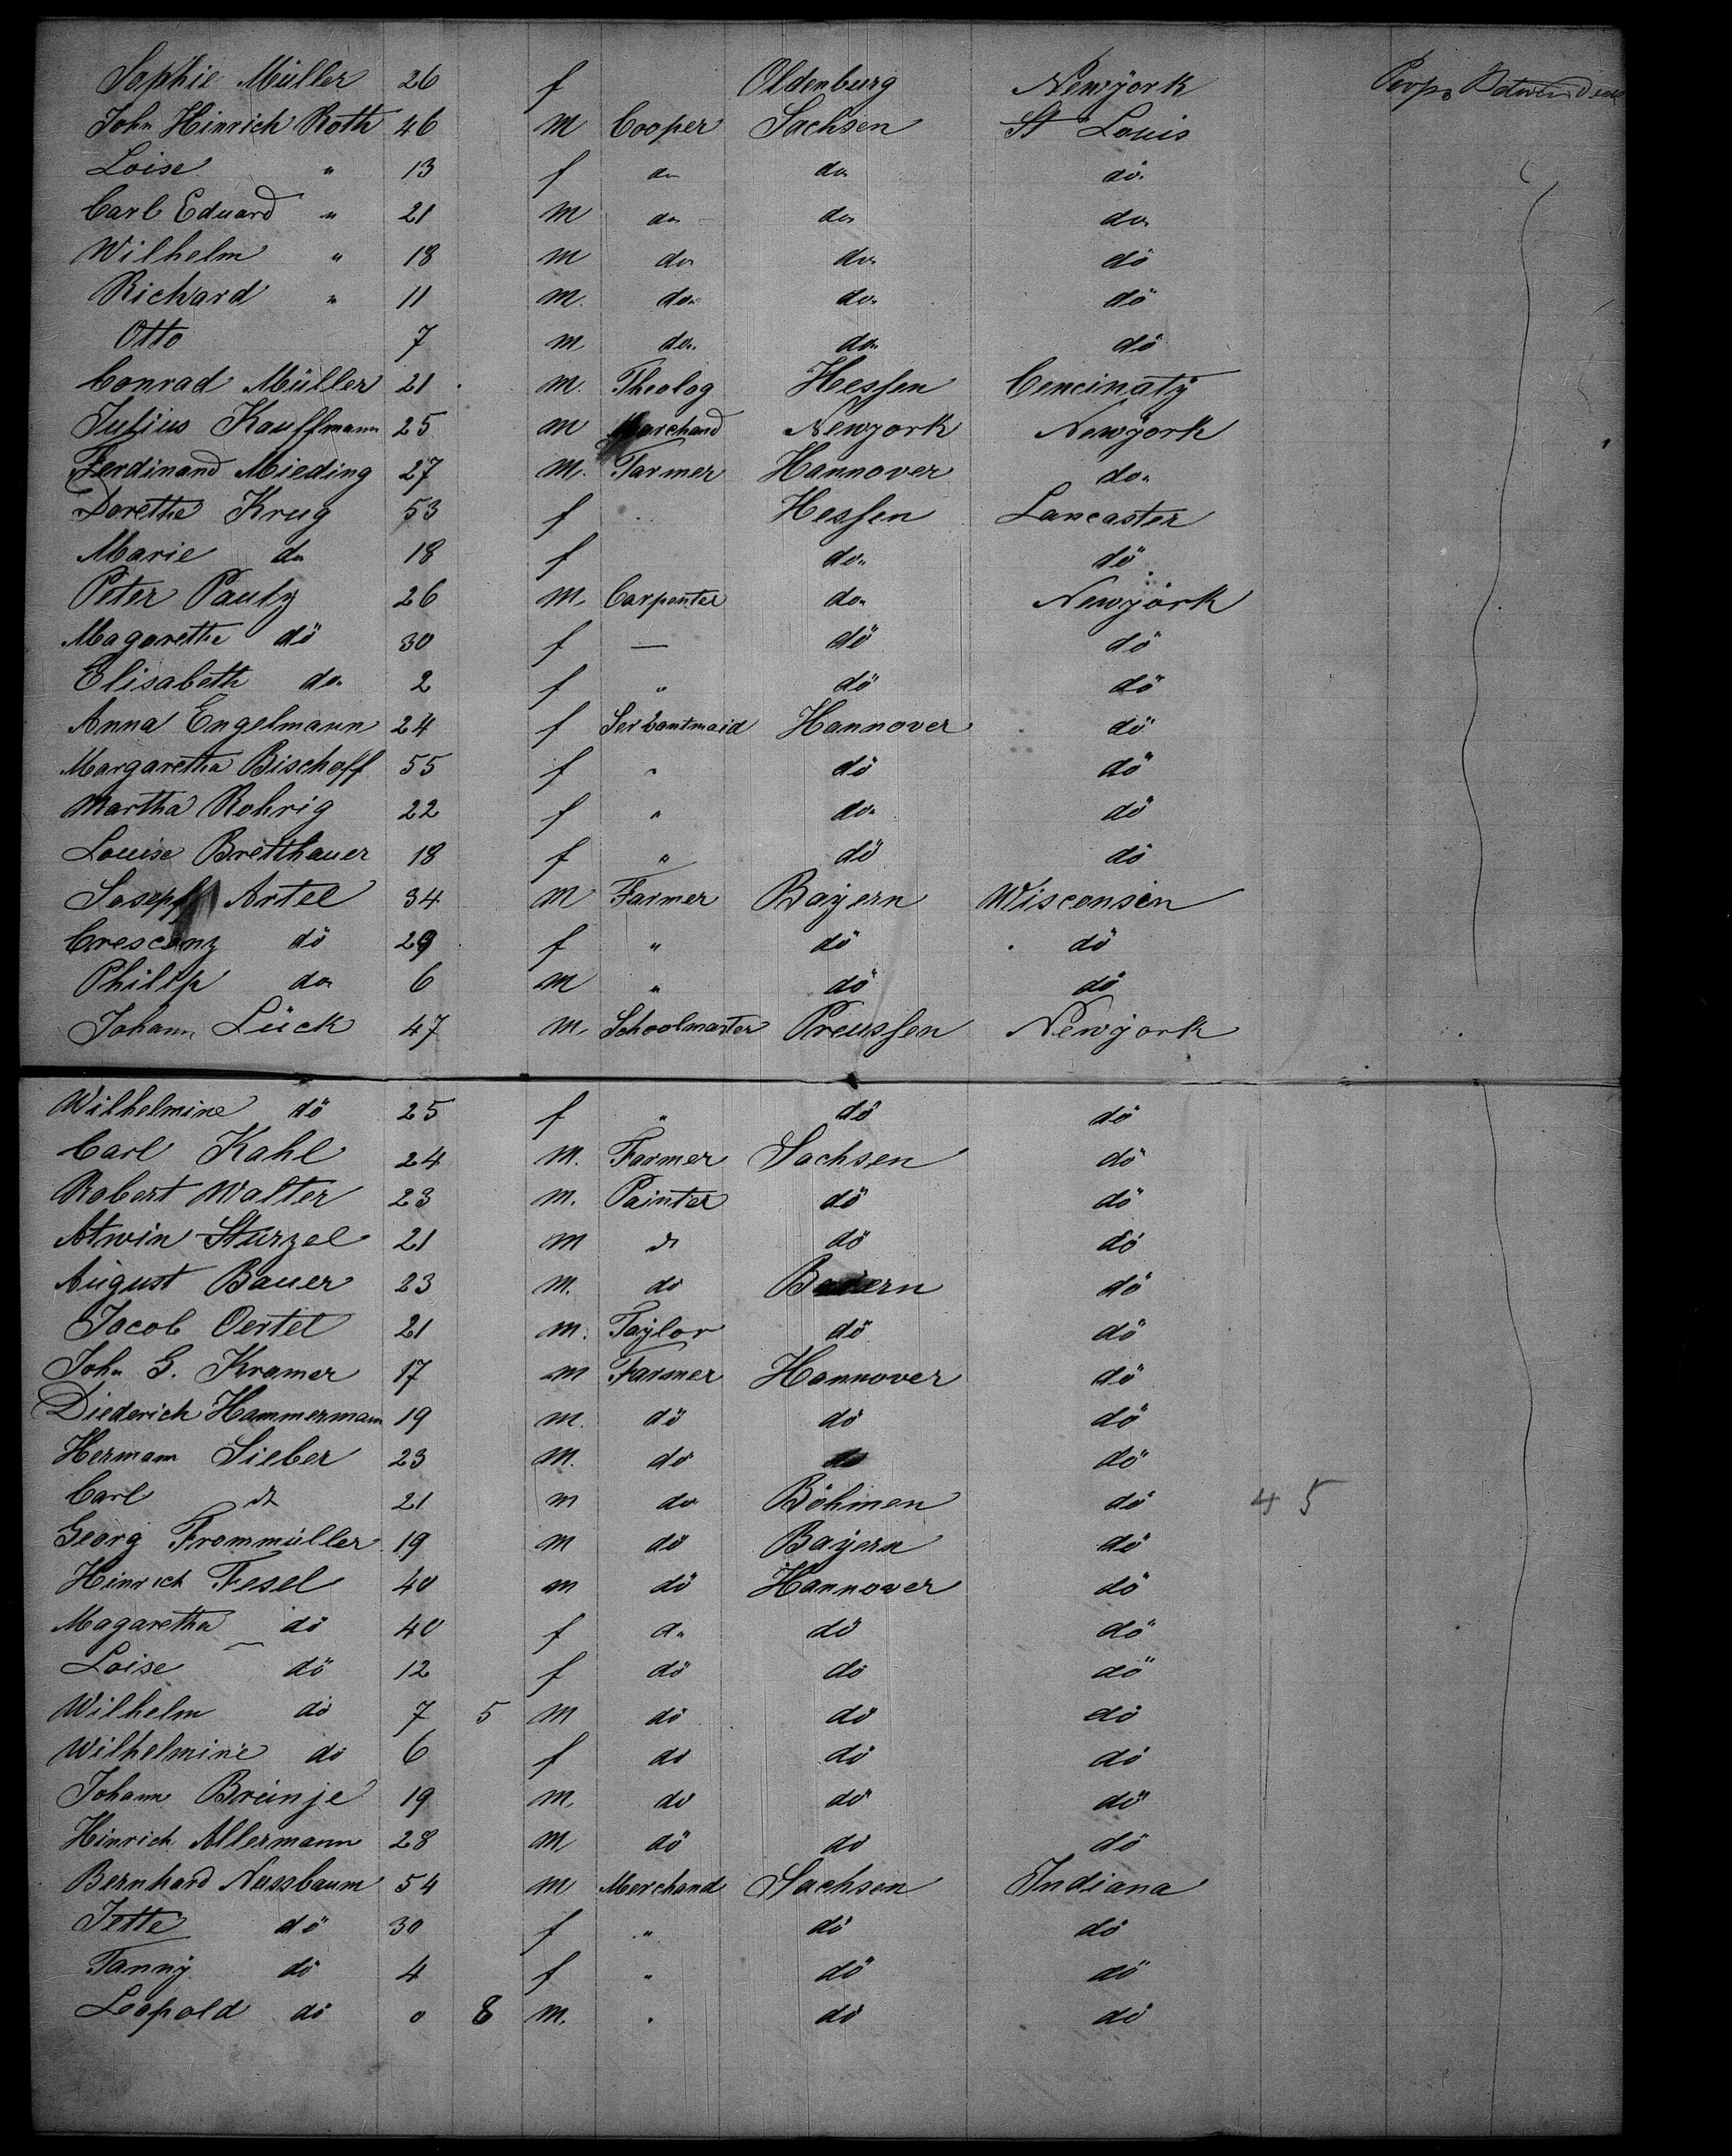 Sophie Müller 26 f Oldenburg Newyork
John Hinrich Roth 46 m Cooper Sachsen St Louis
Loise " 13 f do do do
Carl Eduard " 21 m do do do
Wilhelm " 18 m do do do
Richard " 11 m. do do do
Otto 7 m do do do
Conrad Müller 21 m. Theolog Hessen Cencinaty
Julius Kauffmann 25 m Marchand Newyork Newyork
Ferdinand Mieding 27 m. Farmer Hannover do
Dorethe Krug 53 f Hessen Lancaster
Marie do 18 f do do
Peter Pauly 26 m. Carpenter do Newyork
Magarethe do 30 f — do do
Elisabeth do 2 f " do do
Anna Engelmann 24 f Servantmaid Hannover do
Margaretha Bischoff 55 f " do do
Martha Rohrig 22 f " do do
Louise Bretthauer 18 f " do do
Joseph Artel 34 m Farmer Bayern Wisconsin
Crescenz do 29 f " do do
Philip do 6 m " do do
Johann Lück 47 m. Schoolmaster Preussen Newyork
Wilhelmine do 25 f " do do
Carl Kahl 24 m. Farmer Sachsen do
Robert Walter 23 m. Painter do do
Alwin Sturzel 21 m do do do
August Bauer 23 m. do do
Jacob Oertel 21 m. Taylor do do
John G. Kramer 17 m Farmer Hannover do
Diederich Hammermann 19 m. do do do
Hermann Sieber 23 m. do do do
Carl do 21 m do Böhmen do 4 5
Georg Frommüller 19 m do Bayern do
Hinrich Fesel 40 m do Hannover do
Magaretha do 40 f do do do
Loise do 12 f do do do
Wilhelm do 7 5 m do do do
Wilhelmine do 6 f do do do
Johann Brünje 19 m. do do do
Hinrich Allermann 28 m do do do
Bernhard Nussbaum 54 m Merchand Sachsen Indiana
Jette do 30 f " do do
Fanny do 4 f " do do
Leopold do 0 8 m. " do do